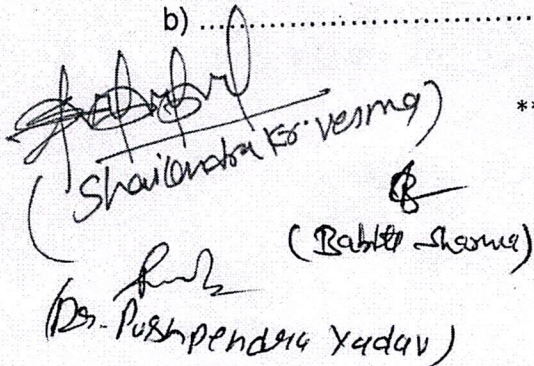 b) ..............................
**
(Shailendra Kr. Verma)
(Bablu Sharma)
(Dr. Pushpendra Yadav)